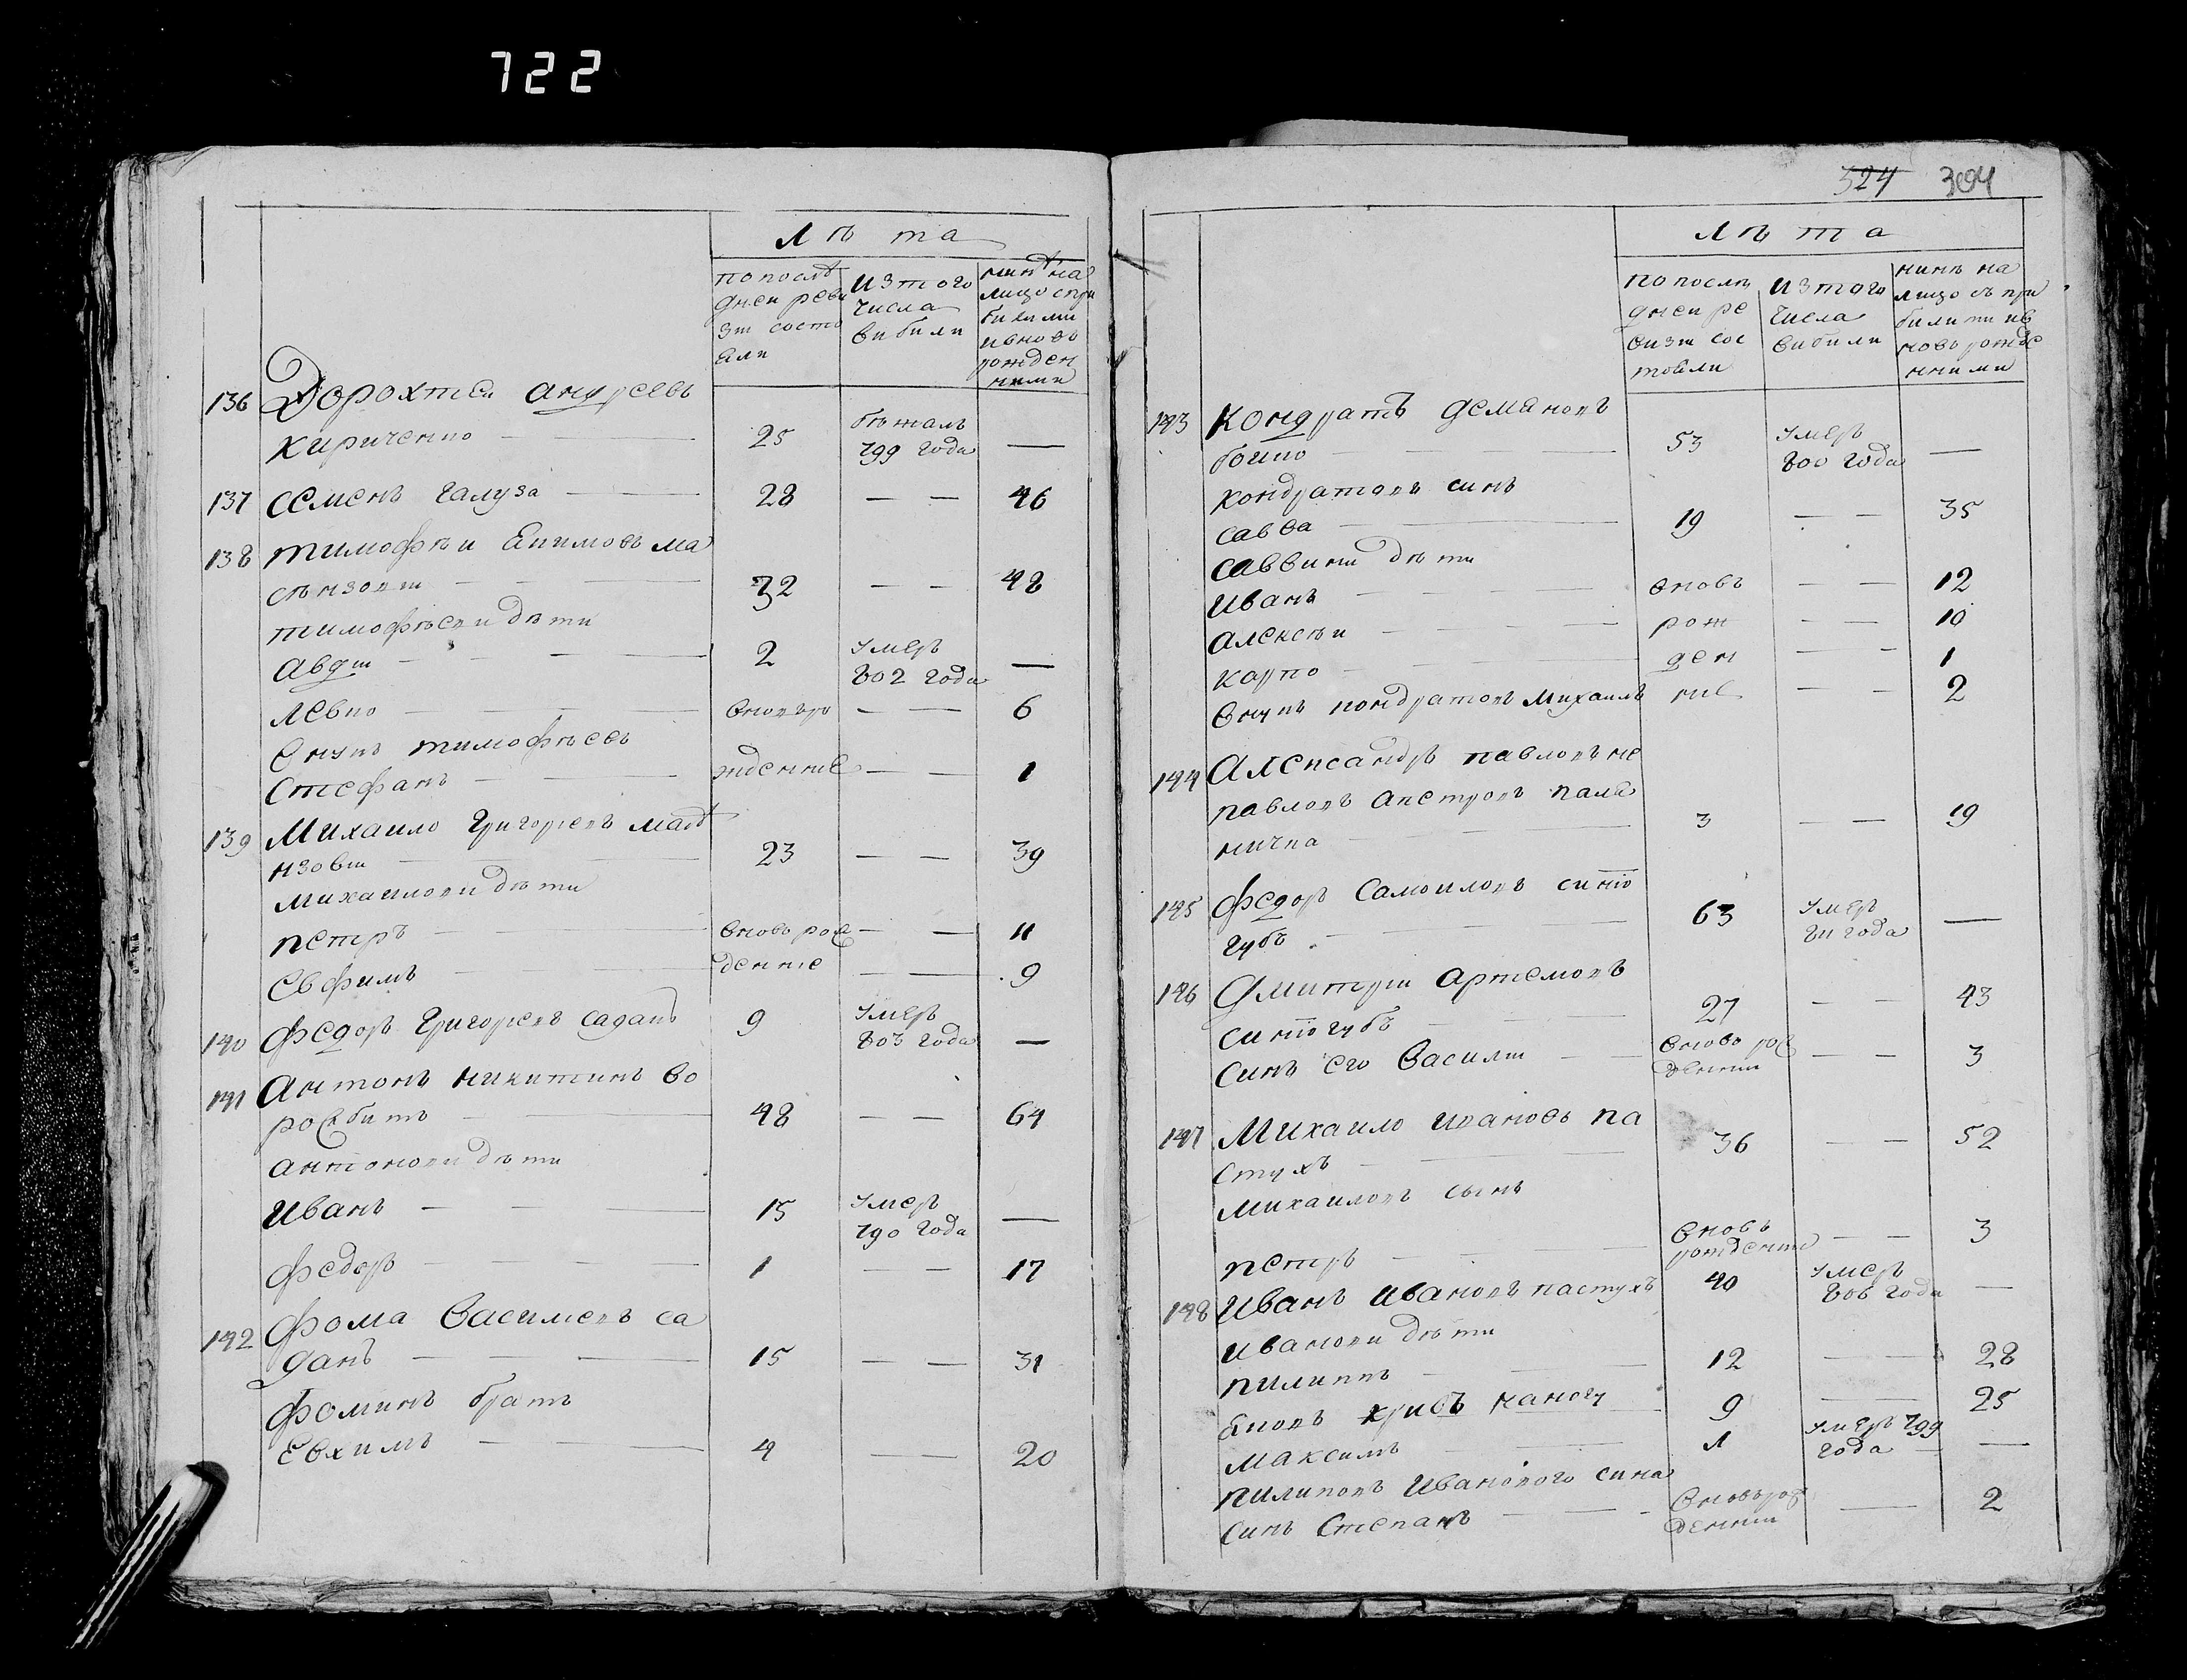 722
Лѣта
попослѣ
днеи реви
зіи состо
яли
изтого
числа
вибили
нинѣ на
лицо спри
билими
ивновь
рожден
ними
136 Дорохтеи андреевъ
кириченко — 25 бѣжалъ
799 года —
137 семенъ галуза — 28 — — 46
138 тимофѣи Якимовъ ма
сѣнзовш — 32 — — 48
тимофѣеви дѣти
авдіи — 2 умеръ
802 года —
левко — вновъро — — 6
внукъ тимофѣевъ
Стефанъ — жденніе — — 1
139 Михаило григориевъ масѣ
нзовш — 23 — — 39
михаилови дѣти
петръ — вновь рож — — 11
Евфимъ — денніе — — 9
140 федоръ григориевъ саданъ 9 умеръ
803 года —
141 антонъ никитинъ во
рожбитъ — 48 — — 64
антонови дѣти
иванъ — 15 умеръ
790 года —
федоръ — 1 — — 17
142 фома василиевъ са
данъ — 15 — — 31
фоминъ братъ
Евхимъ — 4 — 20
324 304
Лѣта
попослѣ
днеи ре
визіи сос
тояли
изтого
числа
вибили
нинѣ на
лицо съ при
билими ив
новь рожде
нними
143 кондратъ демяновъ
боико — 53 умеръ
800 года —
кондратовъ синъ
савва — 19 — — 35
саввини дѣти
иванъ — вновь — — 12
алексѣи — рож — — 10
карпо — ден — — 1
внукъ кондратовъ михаилъ ніе — — 2
144 александръ павловъ не
павловъ апетровъ пала
ничка — 3 — — 19
145 федоръ самоиловъ сино
губъ — 63 умеръ
811 года —
146 дмитріи артемовъ
синогубъ — 27 — — 43
синъ его василіи — вновь рож
денніи — — 3
147 михаило ивановъ па
стухъ — 36 — — 52
михаиловъ сынъ
петръ — вновь
рожденніи — — 3
148 иванъ ивановъ пастухъ 40 умеръ
806 года —
иванови дѣти
пилипъ — 12 — 28
яковъ кривъ наногу 9 — 25
максимъ — 1 умеръ 799
года —
пилиповъ иванового сина
синъ степанъ — вновърож
денніи — 2